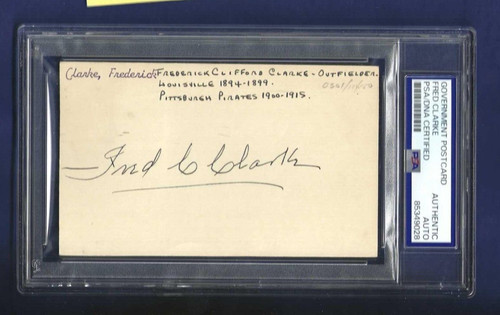 Clarke, Frederick
FREDERICK CLIFFORD CLARKE - OUTFIELDER.
LOUISVILLE 1894-1899.
PITTSBURGH PIRATES 1900-1915.
Fred C Clarke
GOVERNMENT POSTCARD
FRED CLARKE
PSA/DNA CERTIFIED
AUTHENTIC
AUTO
85349028
PSA